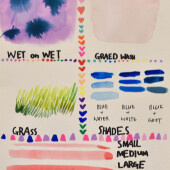 WET on WET
GRAED WASH
BLUE + WATER
BLUE + WHITE
BLUE + GREY
GRASS
SHADES
SMALL
MEDIUM
LARGE